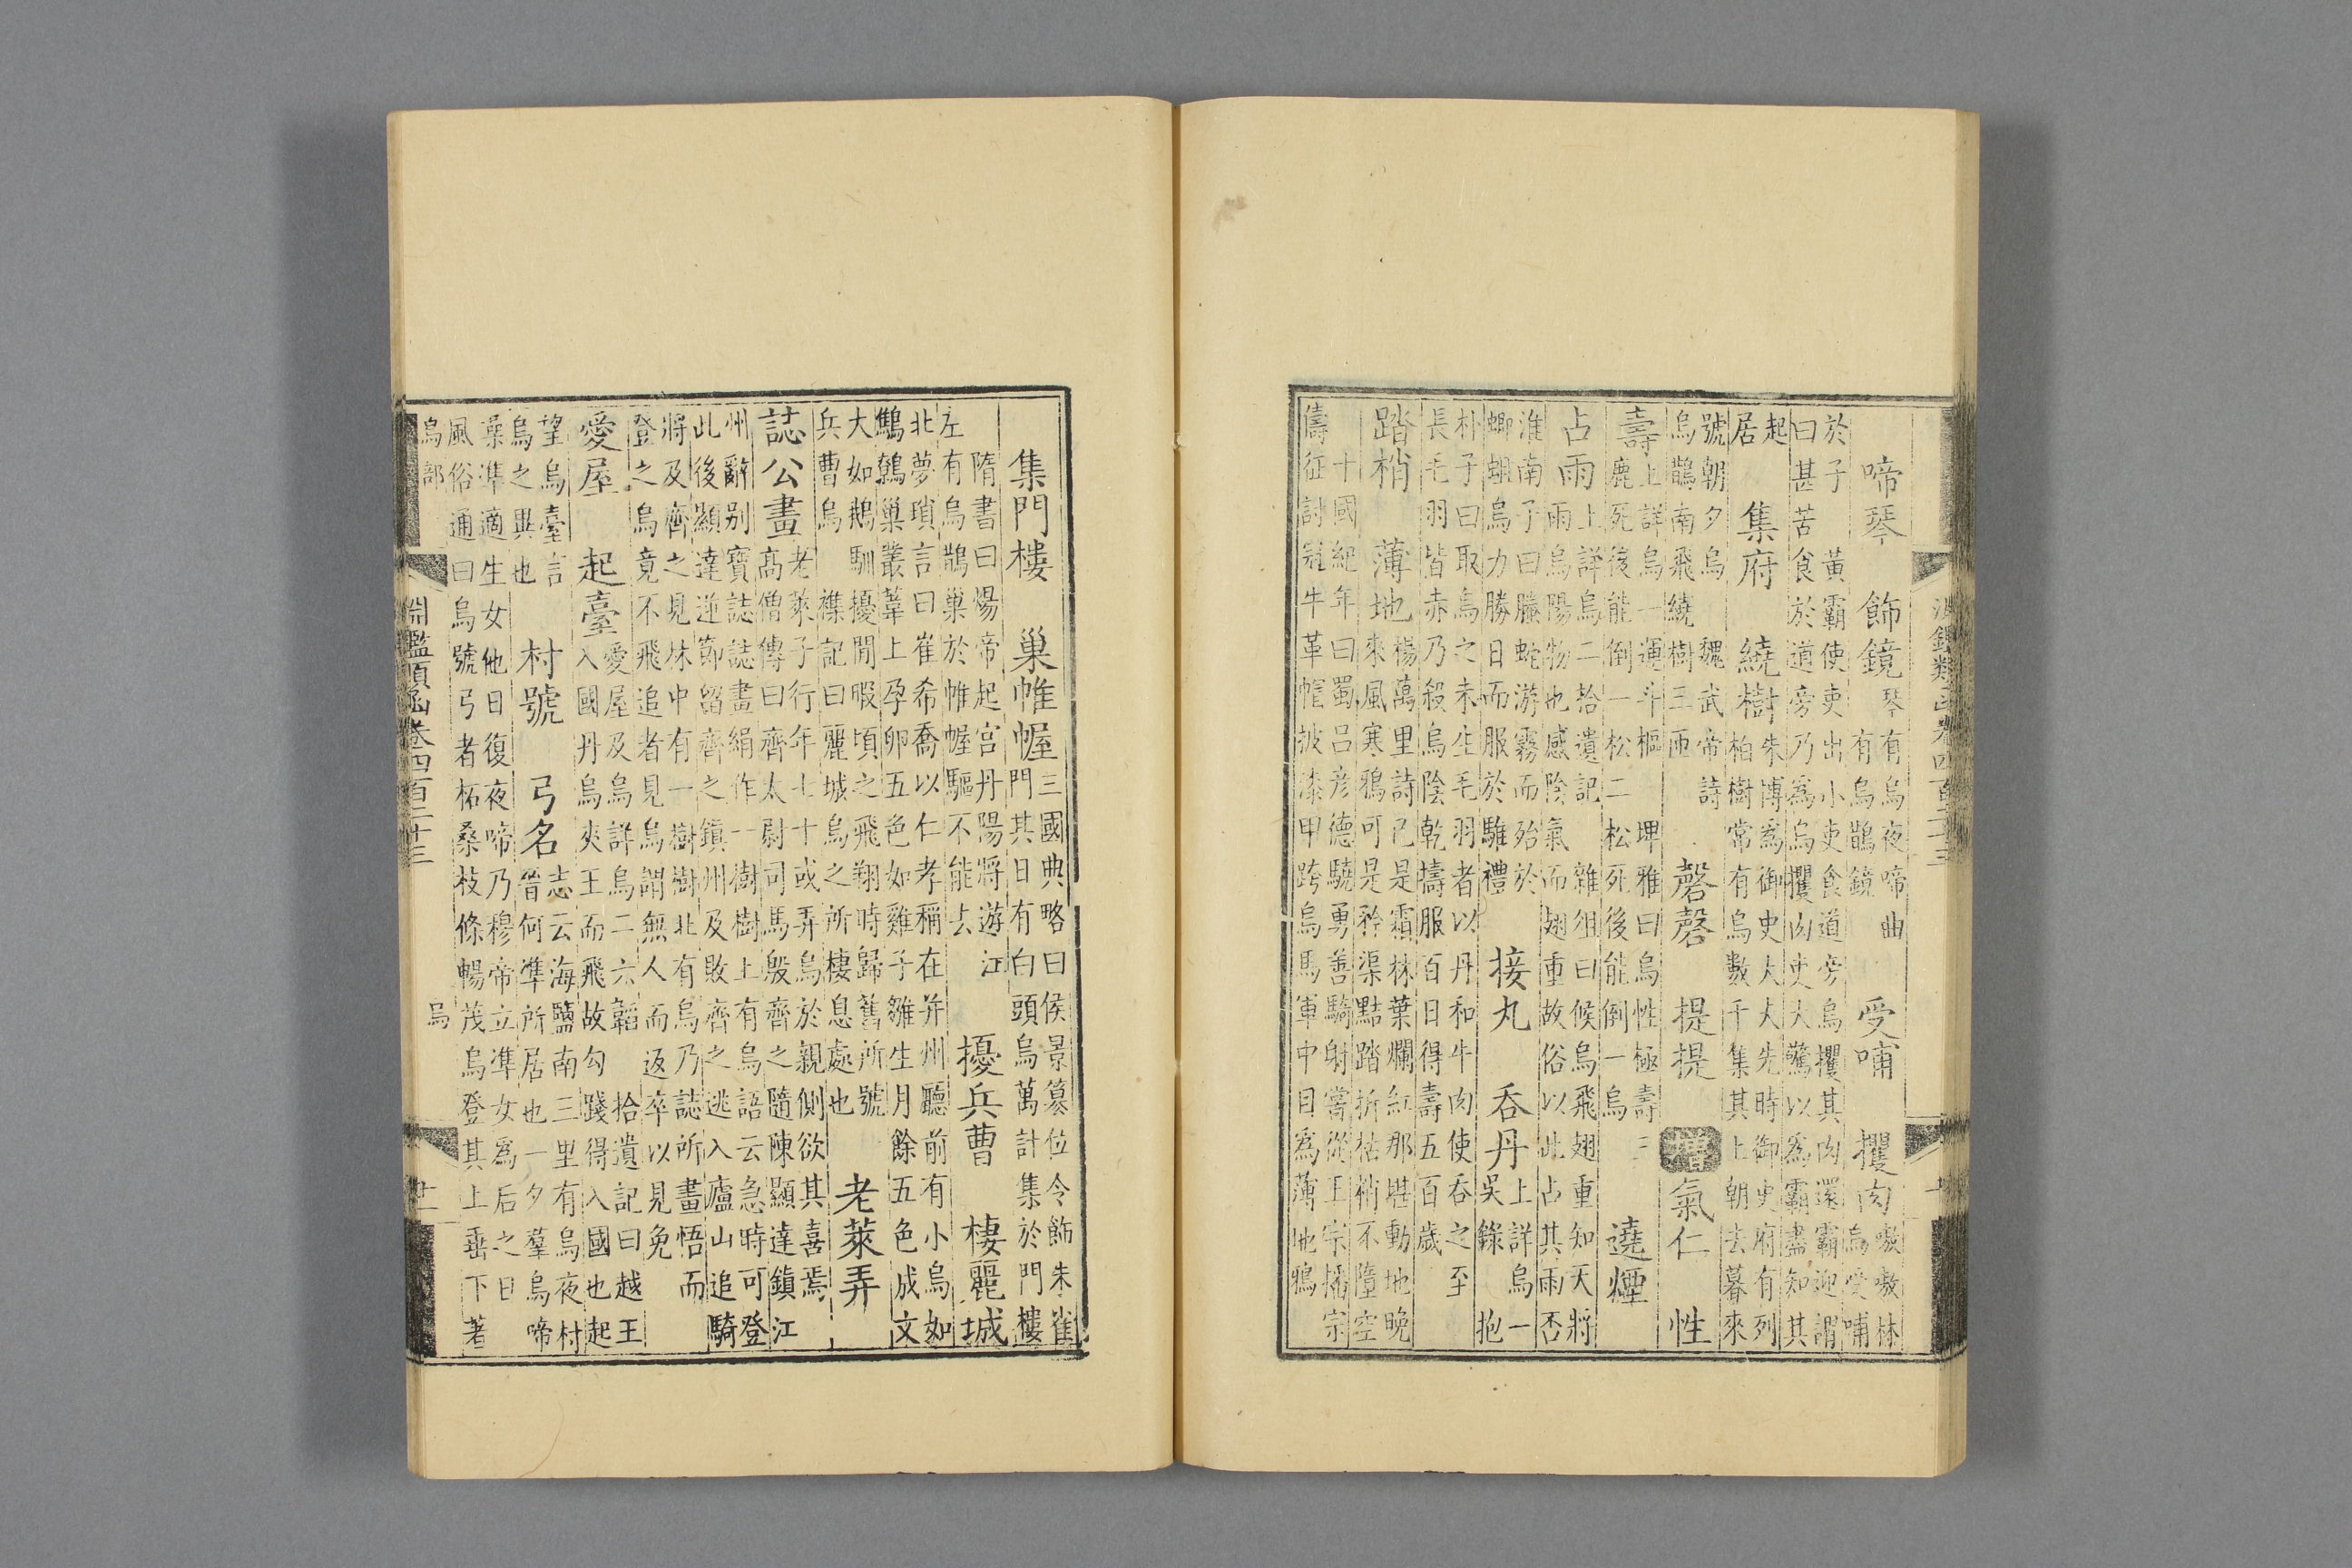 啼琴　飾鏡　琴有烏夜啼曲有烏鵲鏡　受哺　攫肉　嗷嗷林烏受哺
於子　黃霸使吏出小吏食道旁烏攫其肉還霸迎謂
曰甚苦食於道旁乃爲烏攫肉吏大驚以爲霸盡知其
起居　集府　繞樹　朱博爲御史大夫先時御史府有列柏樹常有烏數千集其上朝去暮來
號朝夕烏　魏武帝詩烏鵲南飛繞樹三匝　罄罄　提提　增　氣仁　性
壽　上詳烏一運斗樞鹿死後能倒一松二　埤雅曰烏性極壽三松死後能倒一烏　遶煙
占雨　上詳烏二拾遺記　雜俎曰候烏飛翅重知天將雨烏陽物也感陰氣而翅重故俗以此占其雨否
淮南子曰騰蛇游霧而殆於蝍蛆烏力勝日而服於鵻禮　接丸　吞丹　上詳烏一吳錄　抱
朴子曰取烏之未生毛羽者以丹和牛肉使吞之至
長毛羽皆赤乃殺烏陰乾擣服百日得壽五百歲
踏梢　薄地　楊萬里詩已是霜林葉爛紅那堪動地晚來風寒鴉可是矜渠黠踏折枯梢不墮空
十國紀年曰蜀呂彥德驍勇善騎射嘗從王宗播宗
儔征討冠牛革帽披漆甲跨烏馬軍中目爲薄地鴉
集門樓　巢帷幄　三國典略曰侯景篡位令飾朱雀門其日有白頭烏萬計集於門樓
隋書曰煬帝起宮丹陽將遊江左有烏鵲巢於帷幄驅不能去　擾兵曹　棲麗城
北夢瑣言曰崔希喬以仁孝稱在并州廳前有小烏如
鷦鷯巢叢葦上孕卵五色如雞子雛生月餘五色成文
大如鵝馴擾閒暇頃之飛翔時歸舊所號兵曹烏　襍記曰麗城烏之所棲息處也　老萊弄
誌公畫　老萊子行年七十或弄烏於親側欲其喜焉　高僧傳曰齊太尉司馬殷齊之隨陳顯達鎮江
州辭別寶誌誌畫絹作一樹樹上有烏語云急時可登
此後顯達逆節留齊之鎮州及敗齊之逃入廬山追騎
將及齊之見林中有一樹樹北有烏乃誌所畫悟而
登之烏竟不飛追者見烏謂無人而返卒以見免
愛屋　起臺　愛屋及烏詳烏二六韜　拾遺記曰越王入國丹烏夾王而飛故勾踐得入國也起
望烏臺言烏之異也　村號　弓名　志云海鹽南三里有烏夜村晉何準所居也一夕羣烏啼
葉準適生女他日復夜啼乃穆帝立準女爲后之日
風俗通曰烏號弓者柘桑枝條暢茂烏登其上垂下著
烏部　烏
淵鑑類函卷四百二十三